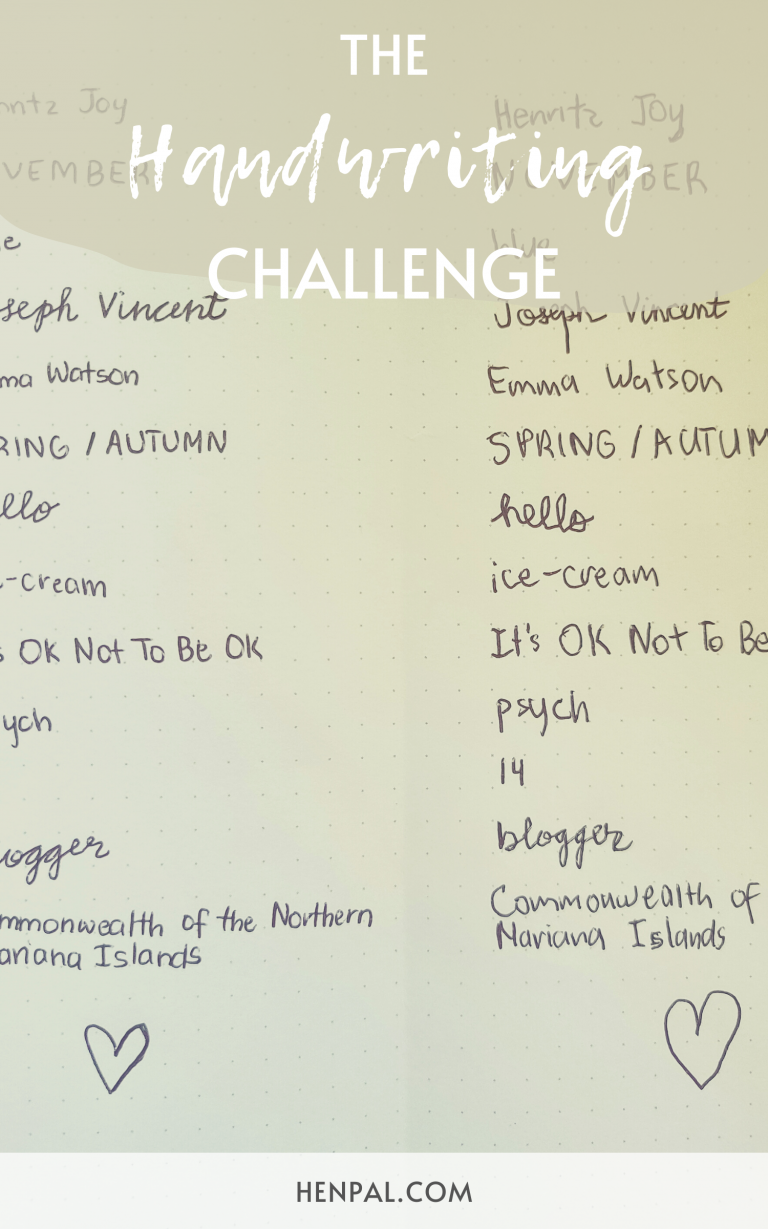 THE
Handwriting
CHALLENGE
Joy
VEMBER
e
seph Vincent
ma Watson
RING / AUTUMN
ello
-cream
s OK Not To Be OK
ych
ogger
mmonwealth of the Northern
ariana Islands
Henritz Joy
NOVEMBER
blue
Joseph Vincent
Emma Watson
SPRING / AUTUM
hello
ice-cream
It's OK Not To Be
psych
14
blogger
Commonwealth of
Mariana Islands
HENPAL.COM